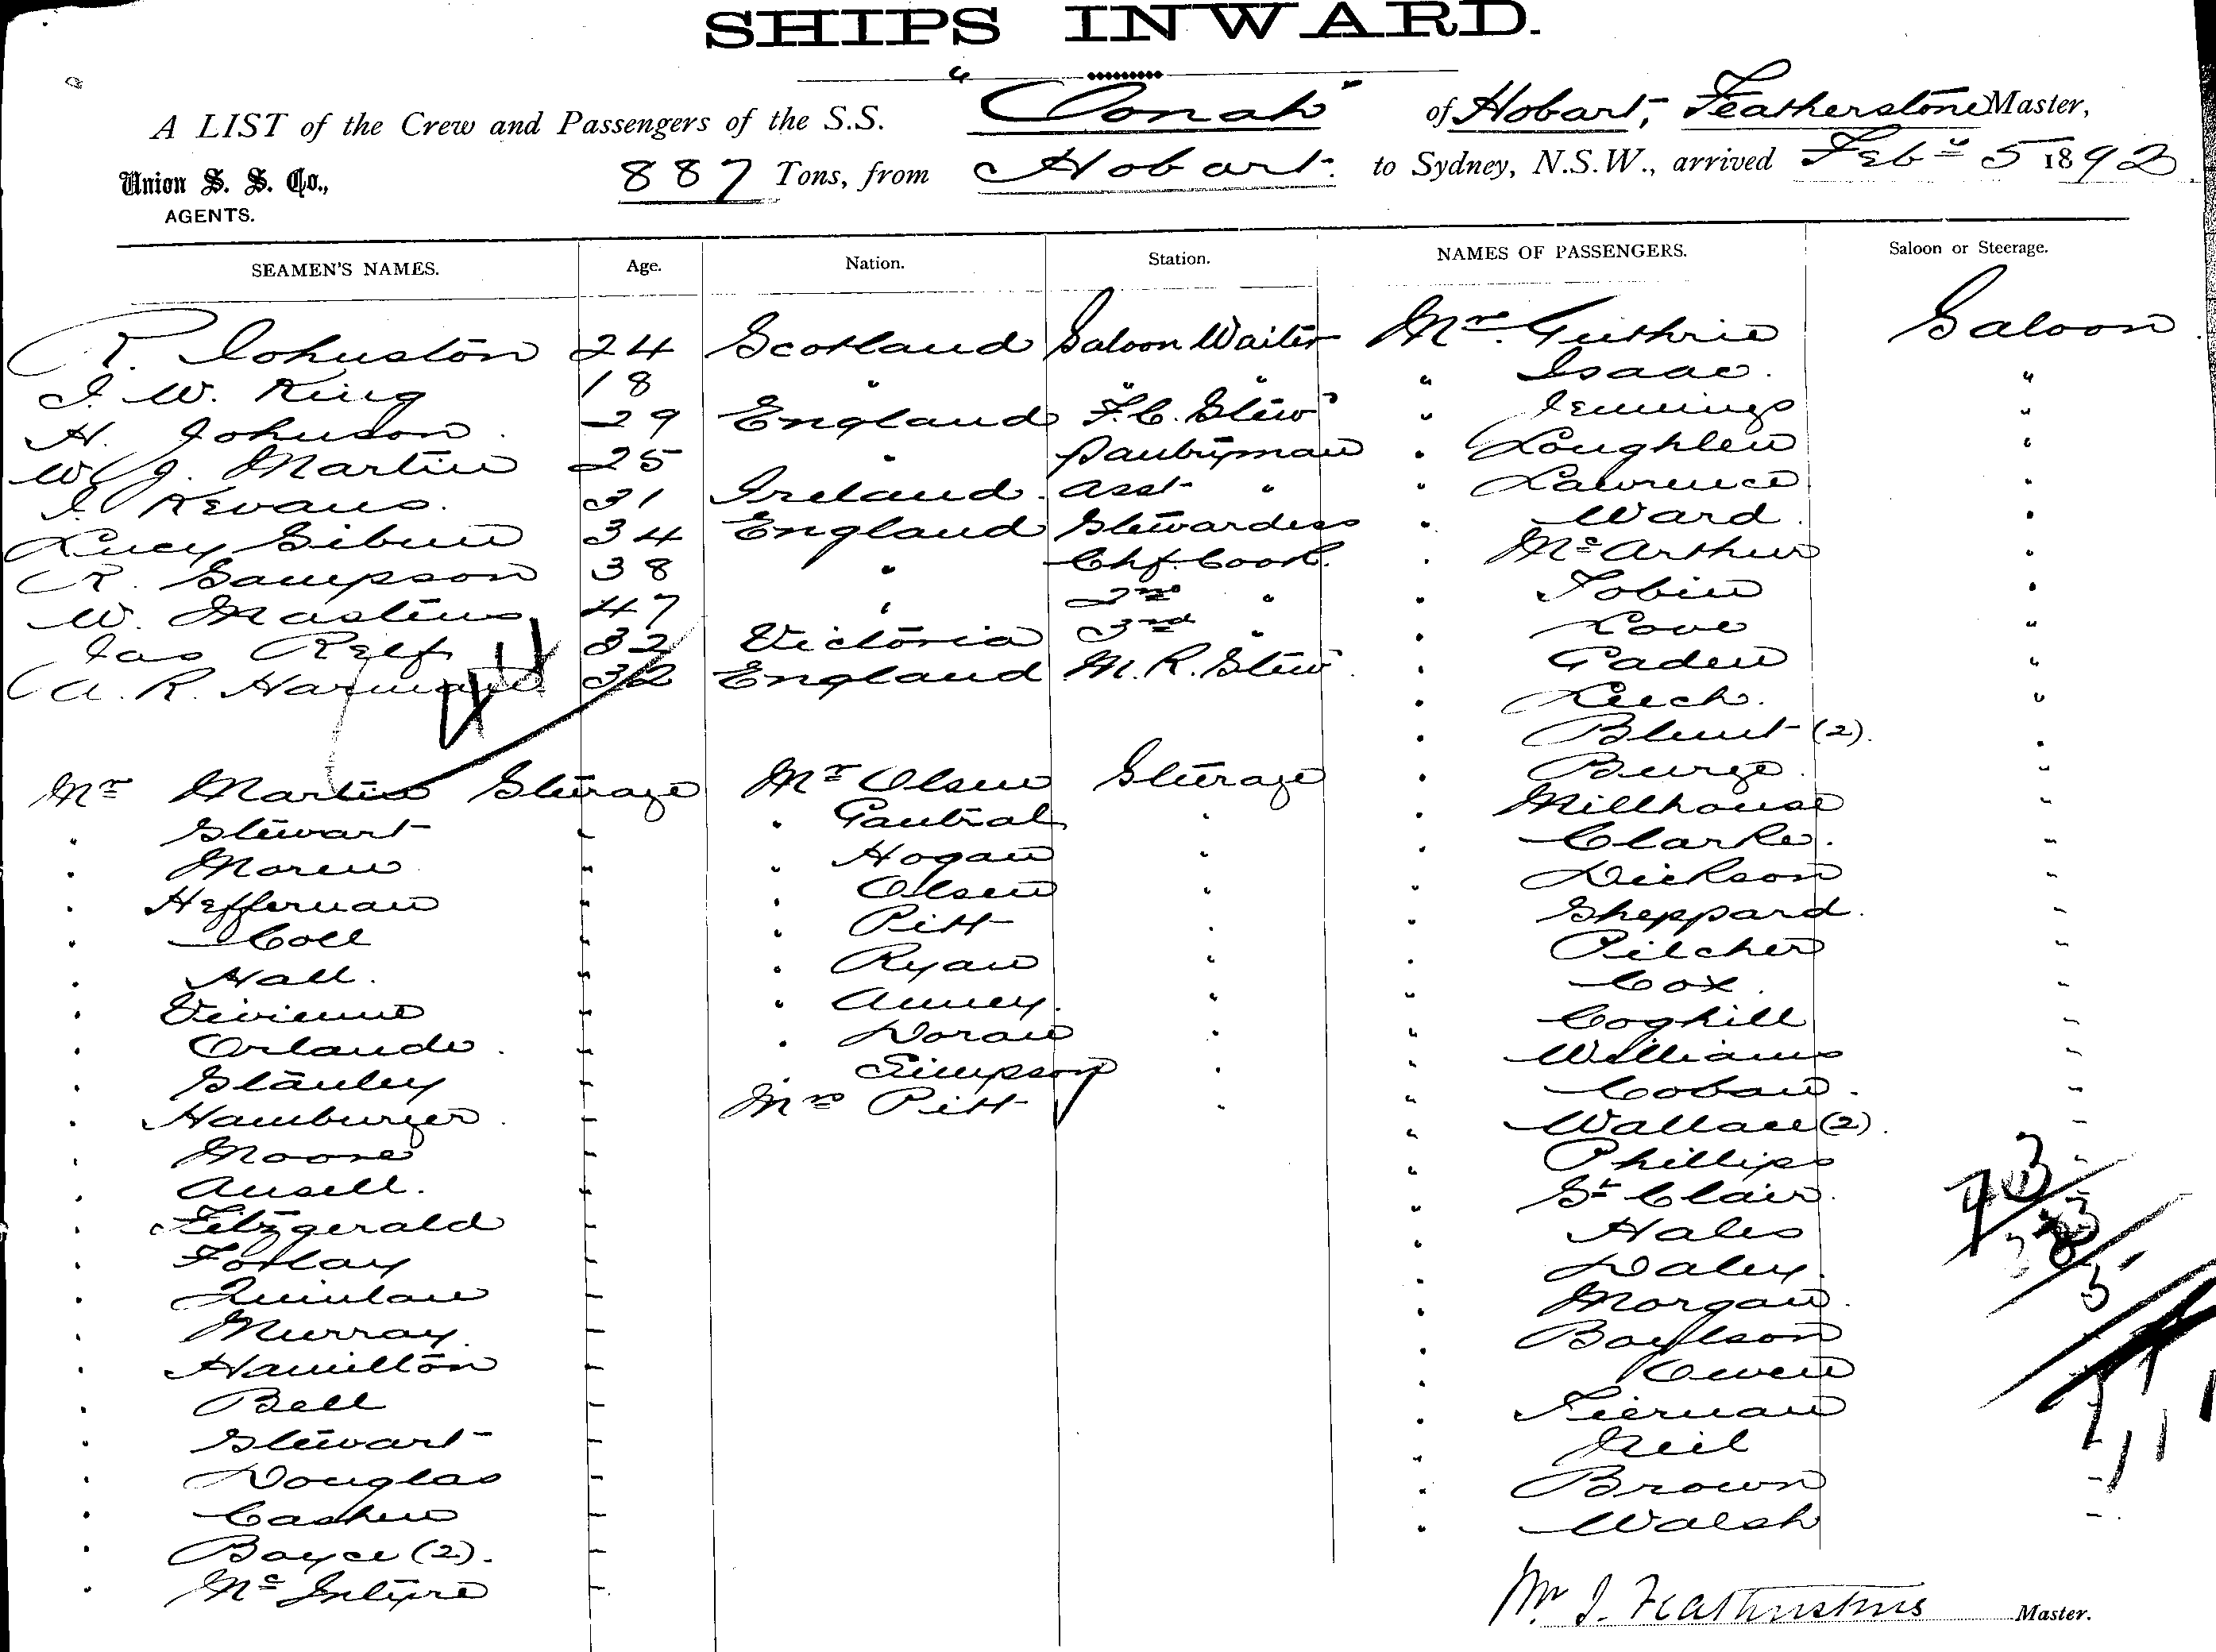 SHIPS INWARD.
A LIST of the Crew and Passengers of the S.S. "Oonah" of Hobart, Featherstone Master,
Union S. S. Co., 887 Tons, from Hobart. to Sydney, N.S.W., arrived Feby 5 1892
AGENTS.
SEAMEN'S NAMES. Age. Nation. Station. NAMES OF PASSENGERS. Saloon or Steerage.
R. Johnston 24 Scotland Saloon Waiter Mr. Guthrie Saloon
J. W. King 18 " " " " Isaac. "
H. Johnson. 29 England F.C. Stew " Jennings "
W. J. Martin 25 " Pantryman " Loughlen "
J. Kevans. 31 Ireland. Asst " " Lawrence "
Lucy Gibun 34 England Stewardess " Ward. "
R. Sampson 38 " Chf. Cook. " McArthur "
W. Mastens 47 " 2nd " " Tobin "
Jas Relf 32 Victoria 3rd " " Love "
A. R. Harman 32 England M. R. Stew. " Gaden "
" Leech. "
" Blunt (2). "
Mr Martin Steerage Mr Olsen Steerage " Burge. "
" Stewart " " Gantral " " Millhouse "
" Moren " " Hogan " " Clarke. "
" Heffernan " " Olsen " " Dickson "
" Coll " " Pitt " " Sheppard. "
" Hall. " " Ryan " " Pilcher "
" Vivienne " " Anney. " " Cox. "
" Orlando. " " Doran " " Coghill "
" Stanley " " Simpson " " Williams "
" Hamburger. " Mrs Pitt " " Coban. "
" Moore " " Wallace (2). "
" Ansell. " " Phillips "
" Fitzgerald " " St Clair.
" Forlay " " Hales
" Quinlan " " Daley.
" Murray. " " Morgan.
" Hamilton " " Boylson
" Bell " " Owen
" Stewart " " Tiernan
" Douglas " " Neil
" Cashen " " Brown "
" Boyce (2). " " Walsh "
" McIntyre "
Wm J. Featherstone Master.